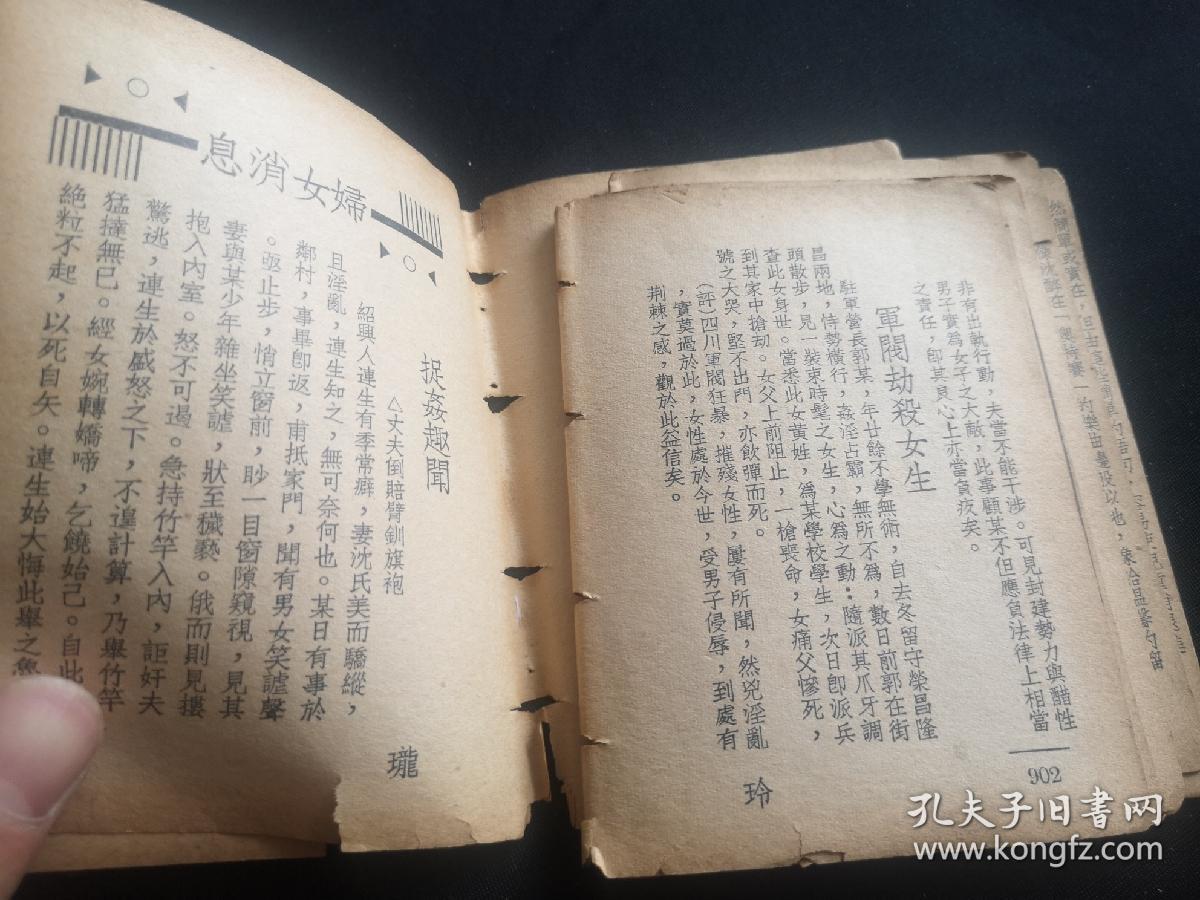 非有出執行動，夫當不能干涉。可見封建勢力與醋性
男子實為女子之大敵，此事顧某不但應負法律上相當
之責任，卽其良心上亦當負疚矣。
軍閥劫殺女生
駐軍營長郭某，年廿餘不學無術，自去冬留守榮昌隆
昌兩地，恃勢橫行，姦淫占霸，無所不為，數日前郭在街
頭散步，見一裝束時髦之女生，心為之動：隨派其爪牙調
查此女身世。當悉此女黃姓，為某學校學生，次日卽派兵
到其家中搶劫。女父上前阻止，一槍喪命，女痛父慘死，
號之大哭，堅不出門，亦飲彈而死。
玲
(評)四川軍閥狂暴，摧殘女性，屢有所聞，然兇淫亂
，實莫過於此，女性處於今世，受男子侵辱，到處有
荆棘之感，觀於此益信矣。
902
婦女消息
捉姦趣聞
瓏
△丈夫倒賠臂釧旗袍
紹興人連生有季常癖，妻沈氏美而驕縱，
且淫亂，連生知之，無可奈何也。某日有事於
鄰村，事畢卽返，甫抵家門，聞有男女笑謔聲
。亟止步，悄立窗前，眇一目窗隙窺視，見其
妻與某少年雜坐笑謔，狀至穢褻。俄而則見摟
抱入內室。怒不可遏。急持竹竿入內，詎奸夫
驚逃，連生於盛怒之下，不遑計算，乃舉竹竿
猛撻無已。經女婉轉嬌啼，乞饒始已。自此
絕粒不起，以死自矢。連生始大悔此舉之魯
孔夫子旧书网
www.kongfz.com